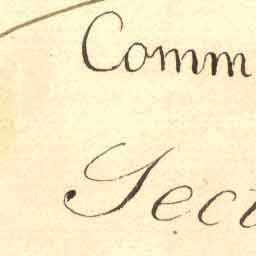 Comm
Sect